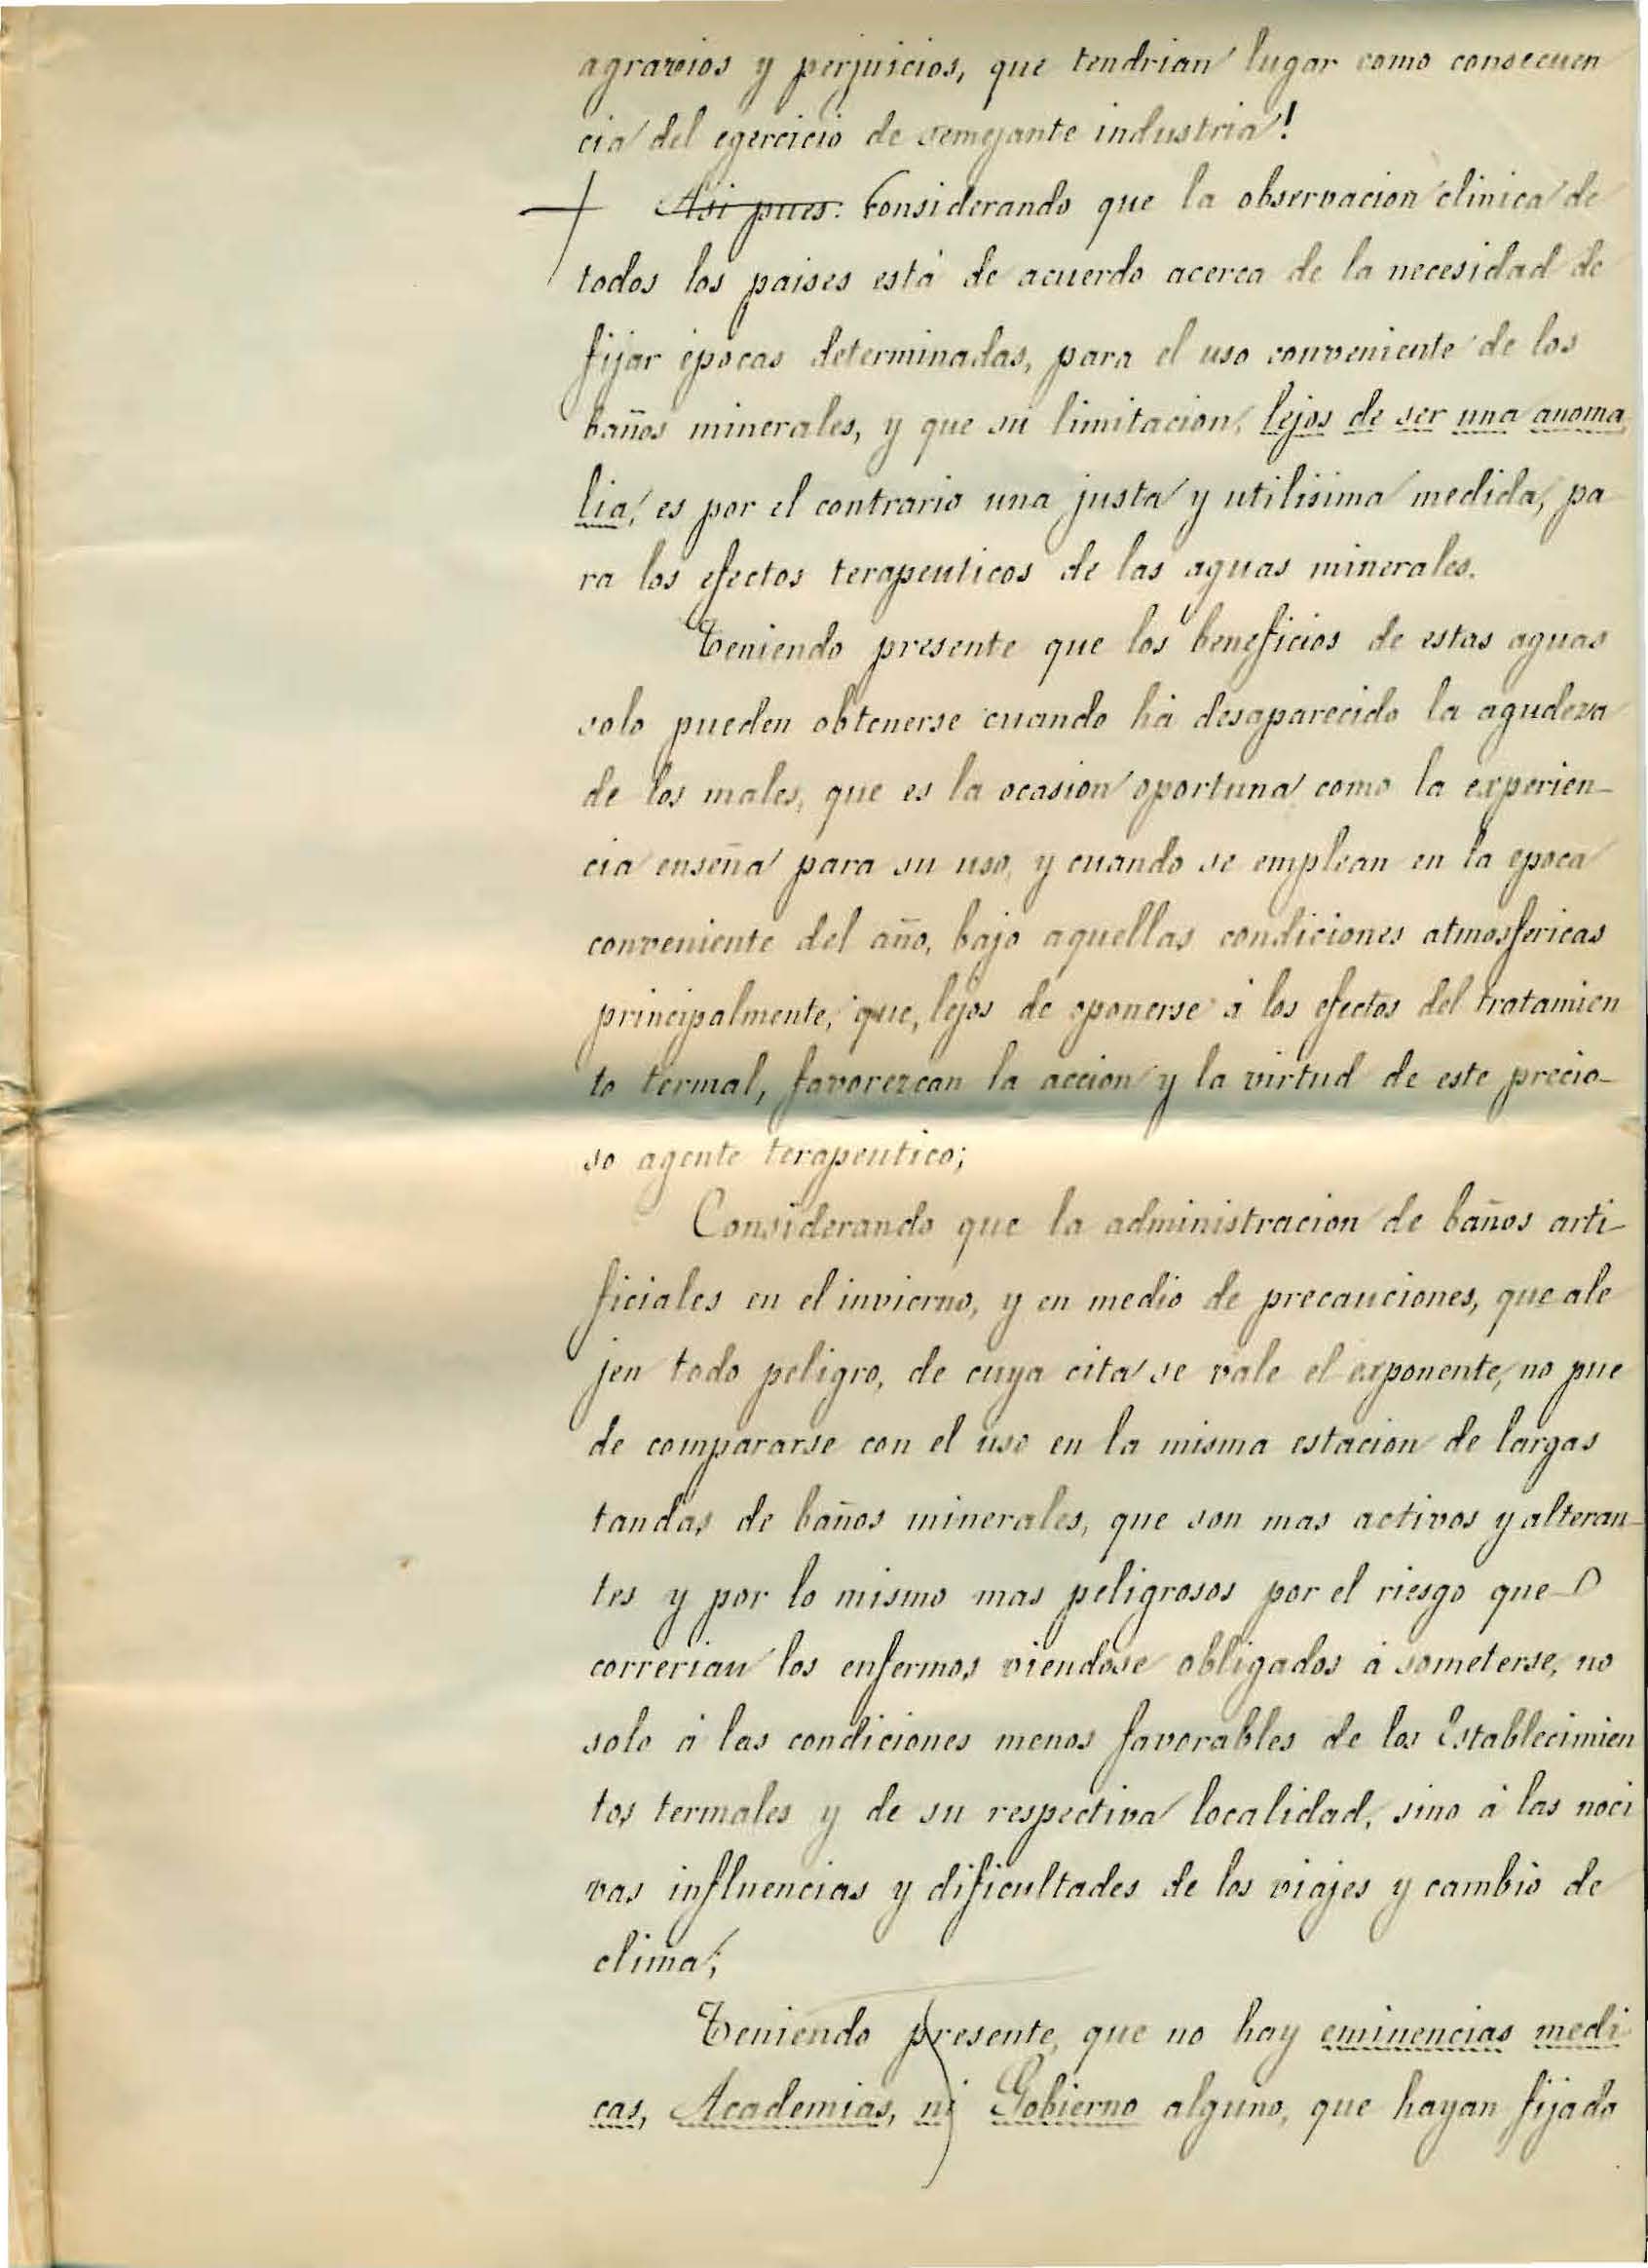 agravios y perjuicios, que tendrian lugar como consecuen
cia del egercicio de semejante industria!
Asi pues: Considerando que la observacion clinica de
todos los paises está de acuerdo acerca de la necesidad de
fijar épocas determinadas, para el uso conveniente de los
baños minerales, y que su limitacion, lejos de ser una anoma
lia, es por el contrario una justa y utilisima medida, pa
ra los efectos terapeuticos de las aguas minerales.
Teniendo presente que los beneficios de estas aguas
solo pueden obtenerse cuando há desaparecido la agudeza
de los males, que es la ocasion oportuna como la experien-
cia enseña para su uso, y cuando se emplean en la epoca
conveniente del año, bajo aquellas condiciones atmosfericas
principalmente, que, lejos de oponerse á los efectos del tratamien
to termal, favorezcan la accion y la virtud de este precio-
so agente terapeutico;
Considerando que la administracion de baños arti-
ficiales en el invierno, y en medio de precauciones, que ale
jen todo peligro, de cuya cita se vale el exponente, no pue
de compararse con el uso en la misma estacion de largas
tandas de baños minerales, que son mas activos y alteran-
tes y por lo mismo mas peligrosos por el riesgo que
correrian los enfermos viendose obligados á someterse, no
solo á las condiciones menos favorables de los Establecimien
tos termales y de su respectiva localidad, sino á las noci
vas influencias y dificultades de los viajes y cambio de
clima;
Teniendo presente, que no hay eminencias medi
cas, Academias, ni Gobierno alguno, que hayan fijado